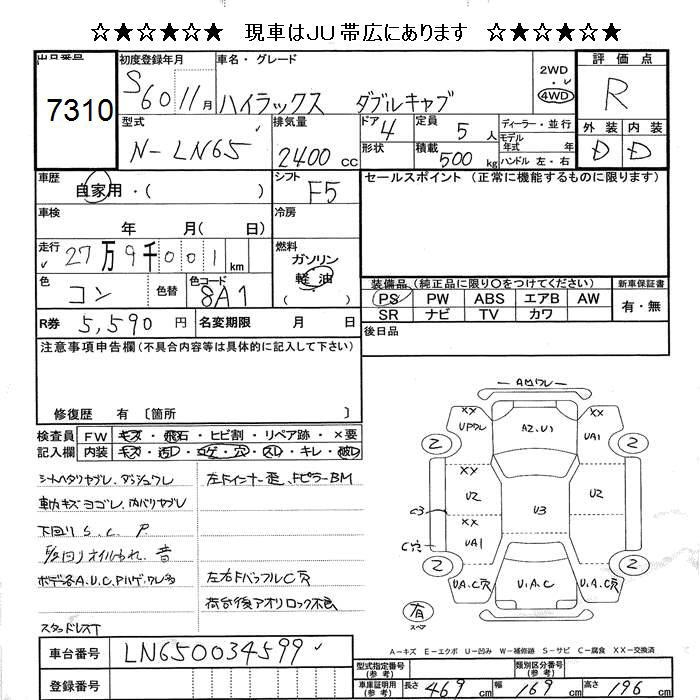 ☆★☆★☆★☆ 現車はJU帯広にあります ☆★☆★☆★☆
出品番号 初度登録年月 車名・グレード 評価点
7310 S60 11月 ハイラックス ダブルキャブ 2WD 4WD R
型式 排気量 ドア 4 定員 5人 ディーラー・並行 外装 内装
N-LN65 2400cc 形状 積載 500kg モデル年式 年 ハンドル 左・右 D D
車歴 自家用・( ) シフト F5 セールスポイント (正常に機能するものに限ります)
車検 年 月( 日) 冷房
走行 27万9千001km 燃料 ガソリン 軽油 ( )
色 コン 色替 色コード 8A1 装備品(純正品に限り○をつけてください) 新車保証書
PS PW ABS エアB AW 有・無
SR ナビ TV カワ
R券 5,590円 名変期限 月 日 後日品
注意事項申告欄(不具合内容等は具体的に記入して下さい)
修復歴 有〔箇所
検査員 FW キズ・飛石・ヒビ割・リペア跡・×要
記入欄 内装 キズ・汚レ・コゲ・穴・スレ・キレ・破レ
シートヘタリヤブレ、ダッシュワレ 左Fインナー歪、FピラーBM
車内キズヨゴレ、内バリヤブレ
下回り S.C.P.
オイルもれ、音
ボデー各A.U.C.Pハゲ、ワレ多 左右FバッフルC穴
荷台後アオリロック不良
スタッドレスT
A ワレ
XX UPワレ A2.U1 XX UA1
2 2
U2 U3 U2
C3 XX UA1
C穴
2 2
U.A.C穴 U.A.C U.A.C穴
有 スペア
A-キズ E-エクボ U-凹み W-補修跡 S-サビ C-腐食 XX-交換済
車台番号 LN650034599
登録番号
型式指定番号(参考) 類別区分番号(参考)
車庫証明用(参考) 長さ 469cm 幅 169cm 高さ 196cm